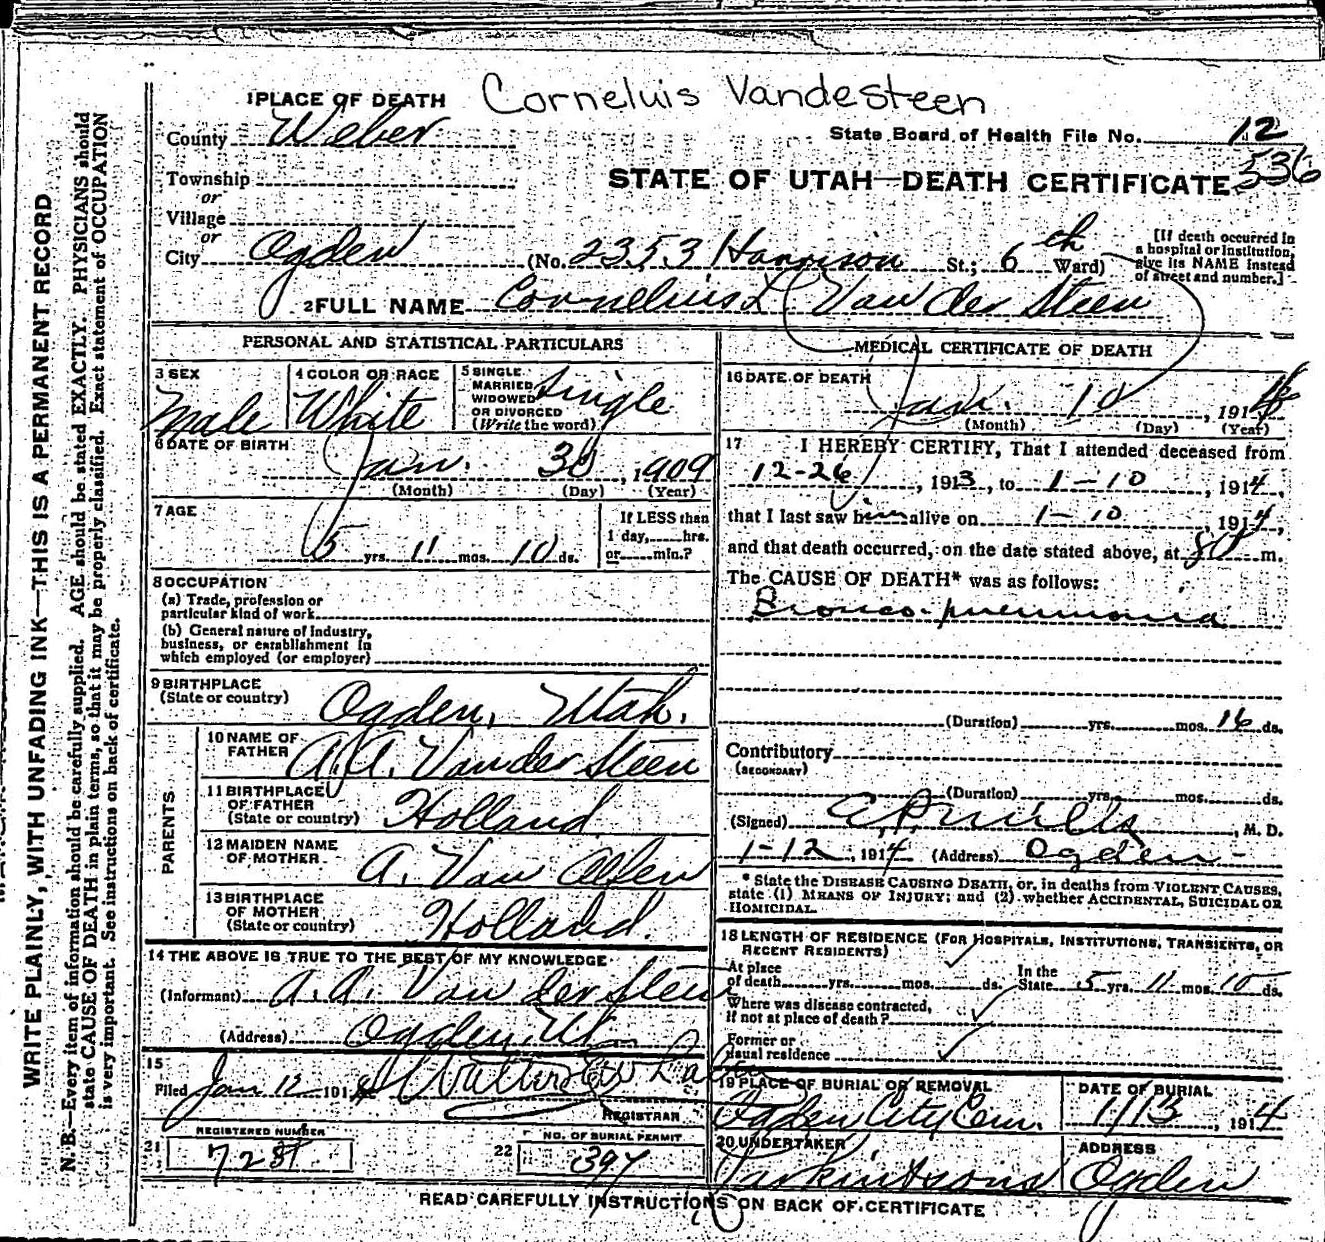 Corneluis Vandesteen
1 PLACE OF DEATH
County Weber
State Board of Health File No. 12
536
Township
or
Village
or
City Ogden (No. 2353 Harrison St.; 6th Ward)
[If death occurred in a hospital or institution, give its NAME instead of street and number.]
STATE OF UTAH—DEATH CERTIFICATE
2 FULL NAME Cornelius L Van der Steen
PERSONAL AND STATISTICAL PARTICULARS
3 SEX Male
4 COLOR OR RACE White
5 SINGLE MARRIED WIDOWED OR DIVORCED (Write the word) Single
6 DATE OF BIRTH Jan. 30, 1909
(Month) (Day) (Year)
7 AGE 5 yrs. 11 mos. 10 ds.
If LESS than 1 day, hrs. or min.?
8 OCCUPATION
(a) Trade, profession or particular kind of work
(b) General nature of industry, business, or establishment in which employed (or employer)
9 BIRTHPLACE (State or country) Ogden, Utah.
PARENTS
10 NAME OF FATHER A. A. Vander Steen
11 BIRTHPLACE OF FATHER (State or country) Holland
12 MAIDEN NAME OF MOTHER A. Van Alfen
13 BIRTHPLACE OF MOTHER (State or country) Holland.
14 THE ABOVE IS TRUE TO THE BEST OF MY KNOWLEDGE
(Informant) A. A. Van der Steen
(Address) Ogden, Ut
15 Filed Jan 12 1914 Walter
REGISTRAR
REGISTERED NUMBER
21
NO. OF BURIAL PERMIT
22 397
MEDICAL CERTIFICATE OF DEATH
16 DATE OF DEATH Jan. 10, 1914
(Month) (Day) (Year)
17 I HEREBY CERTIFY, That I attended deceased from
12-26, 1913, to 1-10, 1914,
that I last saw him alive on 1-10, 1914,
and that death occurred, on the date stated above, at 8 P m.
The CAUSE OF DEATH* was as follows:
Bronco-pneumonia
(Duration) yrs. mos. 16 ds.
Contributory
(SECONDARY)
(Duration) yrs. mos. ds.
(Signed) E. P. Mills, M. D.
1-12, 1914 (Address) Ogden -
* State the DISEASE CAUSING DEATH, or, in deaths from VIOLENT CAUSES, state (1) MEANS OF INJURY; and (2) whether ACCIDENTAL, SUICIDAL OR HOMICIDAL.
18 LENGTH OF RESIDENCE (FOR HOSPITALS, INSTITUTIONS, TRANSIENTS, OR RECENT RESIDENTS)
At place of death yrs. mos. ds. In the State 5 yrs. 11 mos. 10 ds.
Where was disease contracted, if not at place of death?
Former or usual residence
19 PLACE OF BURIAL OR REMOVAL Ogden City Cem.
DATE OF BURIAL 1/13, 1914
20 UNDERTAKER Larkin & Sons
ADDRESS Ogden
READ CAREFULLY INSTRUCTIONS ON BACK OF CERTIFICATE
WRITE PLAINLY, WITH UNFADING INK—THIS IS A PERMANENT RECORD
N. B.—Every item of information should be carefully supplied. AGE should be stated EXACTLY. PHYSICIANS should
state CAUSE OF DEATH in plain terms, so that it may be properly classified. Exact statement of OCCUPATION
is very important. See instructions on back of certificate.